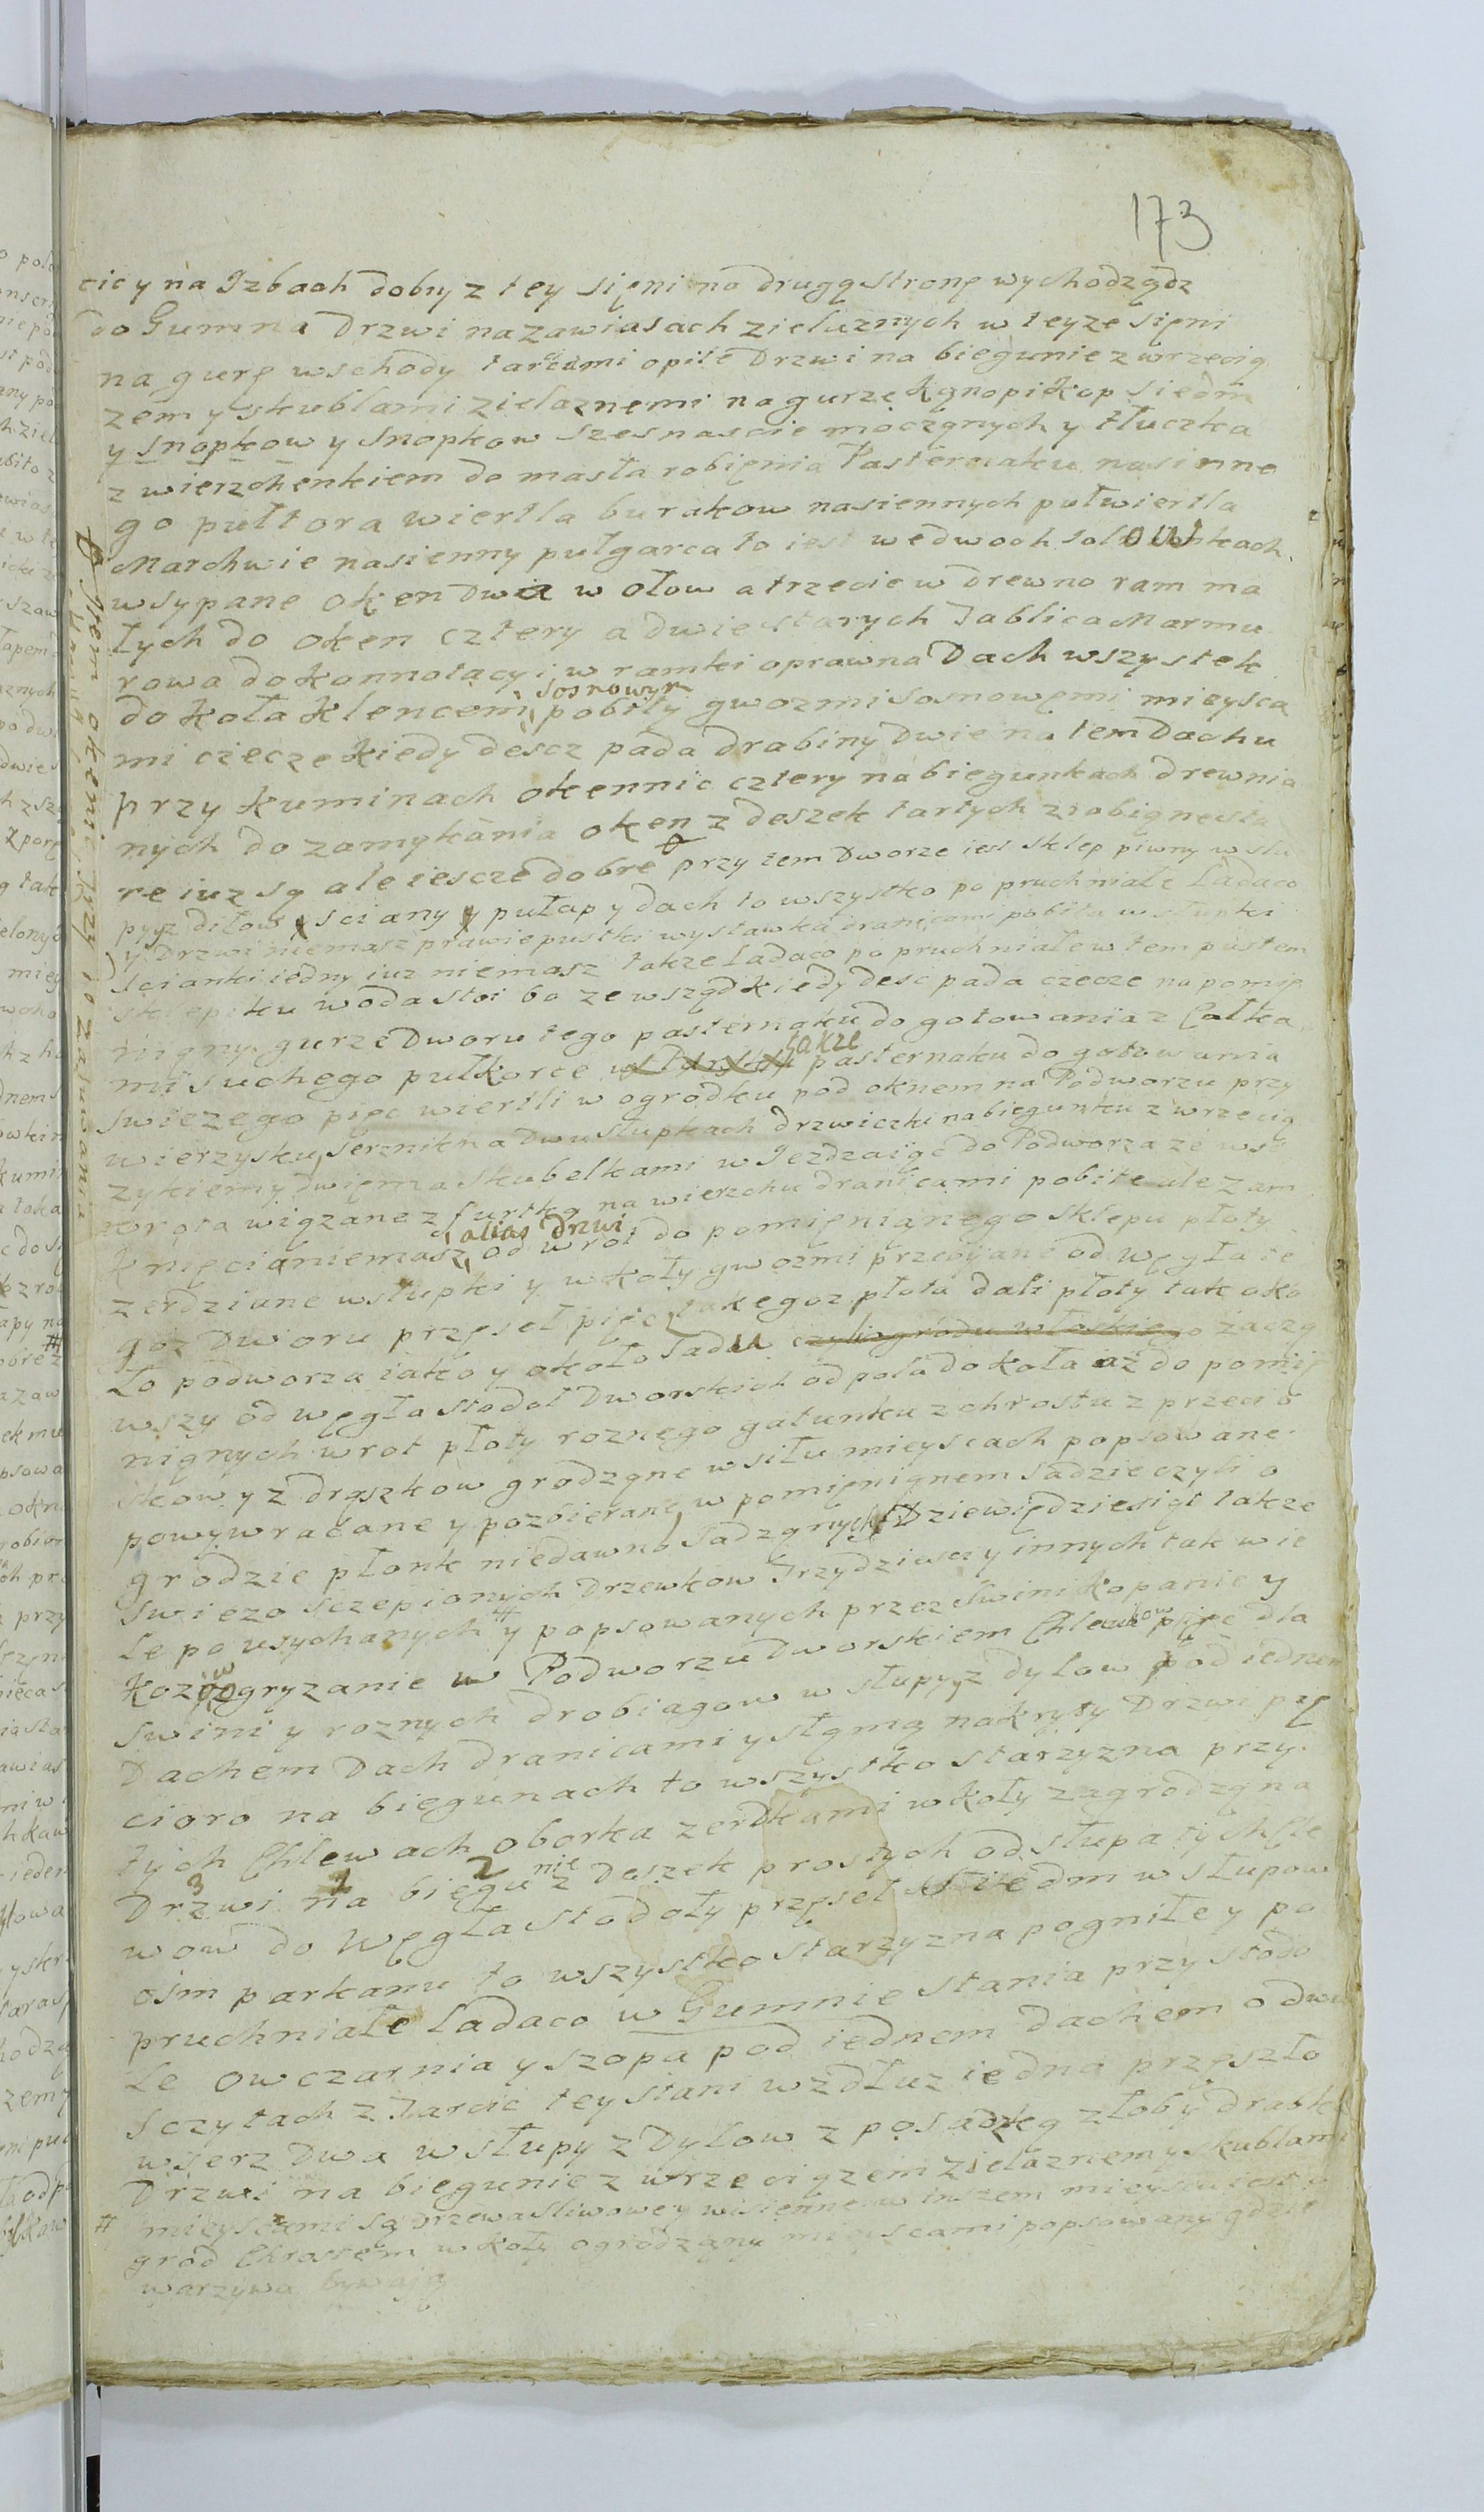 173
cicy na Izbach dobry z tey sięni na drugą stronę wychodządz
do Gumna Drzwi na zawiasach zielaznych w teyze sięni
na gurę wschody tarcami opite Drzwi na biegunie z wrzecią
zem y skublami zielaznemi na gurze kąnopi kop siedm
y snopkow y snopkow szesnascie mocząnych y tłuczka
z wierzchenkiem do masła robięnia Pasternaku nasinne
go pułtora wiertla burakow nasiennych pułwiertla
Marchwie nasienny pułgarca to iest wedwoch solowkach
wsypane oken Dwa w ołow a trzecie w Drewno ram ma
łych do oken cztery a dwie starych Tablica Marmu
rowa do konnotacyi w ramki oprawna Dach wszystek
do koła klencem sosnowym pobity gwozmi sosnowęmi mieysca
mi ciecze kiedy descz pada drabiny Dwie na tem Dachu
przy kuminach okennic cztery na biegunkach drewnia
nych do zamykania oken z deszek tartych zrobiąne sta
re iuz są ale iescze dobre przy tem Dworze iest sklep piwny w słu
py z diłow sciany y pułap y dach to wszystko popruchniałe Ladaco
y Drzwi niemasz prawie pustki wystawka dranicami pobita w słupki
scianki iedny iuz niemasz takze Ladaco popruchniałe w tem pustem
sklepiku woda stoi bo zewsząd kiedy desc pada czecze na pomię
niąny gurze Dworu tego pasternaku do gotowania z Całka
mi suchego pułkorce takze pasternaku do gotowania
swiezego pięc wiertli w ogrodku pod oknem na Podworzu przy
wierzysku, serznik na Dwu słupkach drzwiczki na biegunku z wrzecią
zykiem y dwięma skubelkami w Jezdzaiąc do Podworza ze wsi
wrota wiązane z furtką na wierzchu dranicami pobite ale zam
knięcia niemasz alias drzwi od wrot do pomięniąnego sklepu płoty
zerdziane w słupki y w koły gwozmi przebijane od węgła te
goz Dworu przęseł pięc takegoz płota dali płoty tak oko
ło podworza iako y około sadu czyli ogrodu włoskiego zaczą
wszy od węgła stodoł Dworskich od pola do koła az do pomię
niąnych wrot płoty roznego gatunku z chrostu z przecio
skow y z drążkow grodząne w siłu mieyscach popsowane
powywracane y pozbierane, w pomięniąnem sadzie czyli o
grodzie płonk niedawno sadząnych Dziewiędziesiąt takze
swiezo sczepionych Drzewkow Trzydziesci y innych tak wie
le po usychanych # y popsowanych przez swini kopanie y
koziow gryzanie w Podworzu Dworskiem Chlewikow pięc dla
swini y roznych drobiagow w słupy z dylow pod iednem
Dachem Dach dranicami y słąmą nakryty Drzwi pię
cioro na biegunach to wszystko starzyzna przy
tych Chlewach oborka zerdkami w koły zagrodząna
3 1 2
Drzwi na biegunie z Deszek prostych od słupa tych Chle
wow do Węgła stodoły przęseł siedm w słupow
osm parkanu to wszystko starzyzna pogniłe y po
pruchniałe Ladaco w Gumnie stania przy stodo
le owczarnia y szopa pod iednem dachem o dwu
sczytach z Tarcic tey stani wzdłuz iedna przęszło
wserz Dwa w słupy z Dyłow z posadzką złoby drabki
Drzwi na biegunie z wrzeciązem zielaznem y skublami
# mieyscami są Drzewa sliwowe y wisienne w inszem mieyscu iest o
grod Chrostem w koły ogrodząny mieyscami popsowany gdzie
warzywa bywają
oken ic Trzy do zasuwania